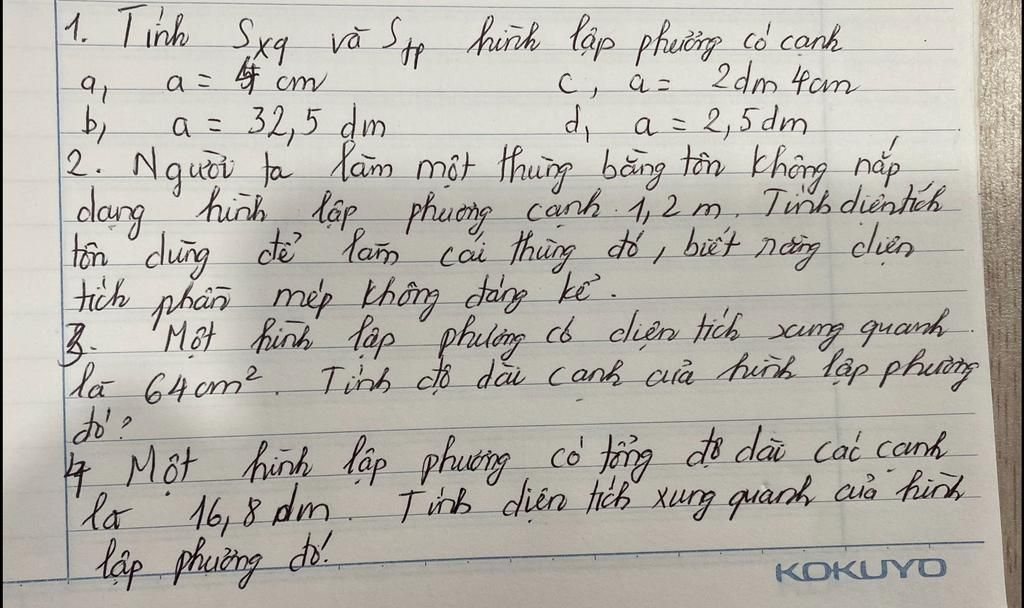 1. Tính Sxq và Stp hình lập phương có cạnh
a, a = 4 cm c, a = 2dm 4cm
b, a = 32,5 dm d, a = 2,5dm
2. Người ta làm một thùng bằng tôn không nắp
dạng hình lập phương cạnh 1,2 m. Tính diện tích
tôn dùng để làm cái thùng đó, biết rằng diện
tích phần mép không đáng kể.
3. Một hình lập phương có diện tích xung quanh
là 64cm². Tính độ dài cạnh của hình lập phương
đó?
4 Một hình lập phương có tổng độ dài các cạnh
là 16,8 dm. Tính diện tích xung quanh của hình
lập phương đó.
KOKUYO